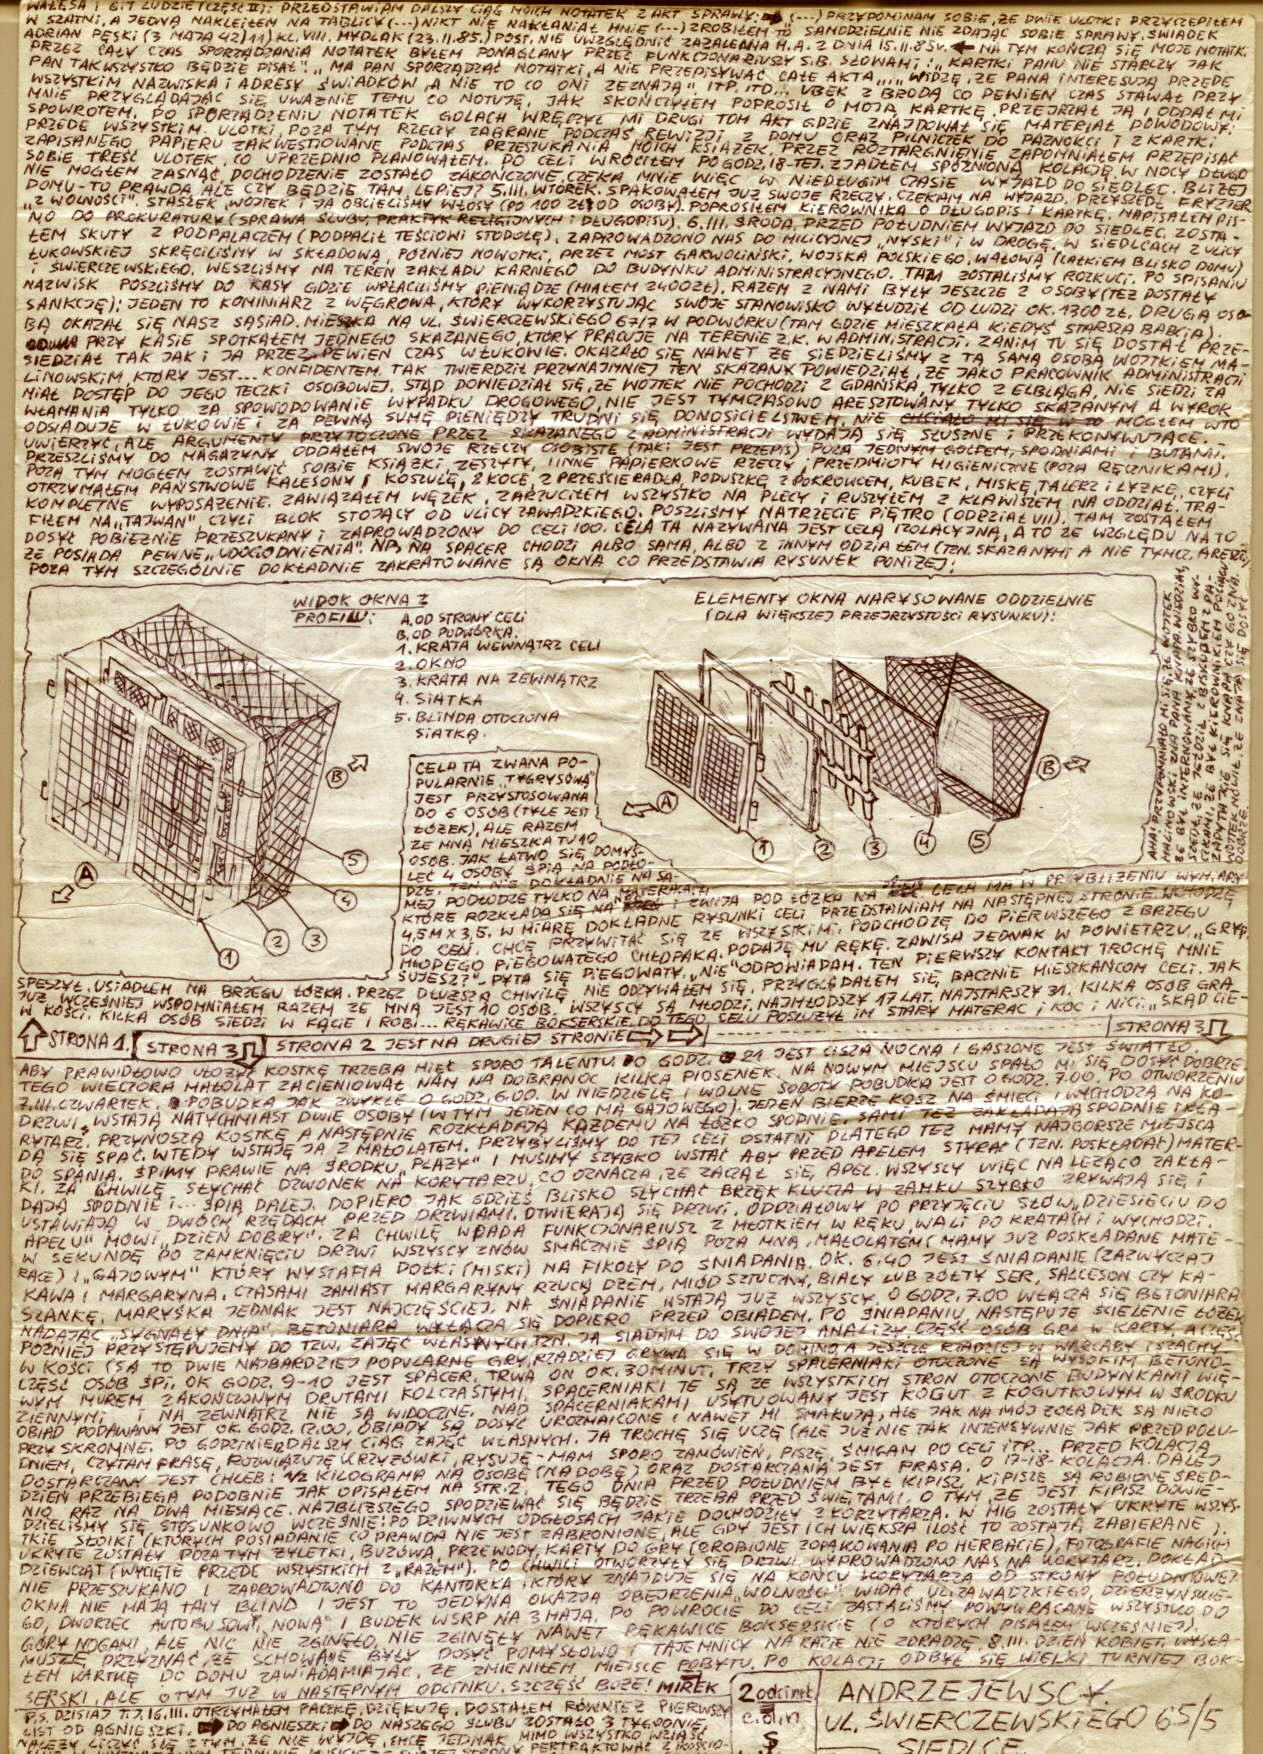 WAŁĘSA I GIT LUDZIE (CZĘŚĆ II): PRZEDSTAWIAM DALSZY CIĄG MOICH NOTATEK Z AKT SPRAWY: (...) PRZYPOMINAM SOBIE, ŻE DWIE ULOTKI PRZYCZEPIŁEM
W SZATNI, A JEDNĄ NAKLEIŁEM NA TABLICY (...) NIKT NIE NAKŁANIAŁ MNIE (...) ZROBIŁEM TO SAMODZIELNIE NIE ZDAJĄC SOBIE SPRAWY. ŚWIADEK
ADRIAN PĘSKI (3 MAJA 42) 11) KL. VIII. MYDLAK (23.11.85.) POST. NIE UWZGLĘDNIĆ ZAŻALENIA M.A. Z DNIA 15.11.85r. NA TYM KOŃCZĄ SIĘ MOJE NOTATKI.
PRZEZ CAŁY CZAS SPORZĄDZANIA NOTATEK BYŁEM PONAGLANY PRZEZ FUNKCJONARIUSZY S.B. SŁOWAMI: "KARTKI PANU NIE STARCZY JAK
PAN TAK WSZYSTKO BĘDZIE PISAŁ", "MA PAN SPORZĄDZAĆ NOTATKI, A NIE PRZEPISYWAĆ CAŁE AKTA", "WIDZĘ, ŻE PANA INTERESUJĄ PRZEDE
WSZYSTKIM NAZWISKA I ADRESY ŚWIADKÓW, A NIE TO CO ONI ZEZNAJĄ" ITP, ITD... UBEK Z BRODĄ CO PEWIEN CZAS STAWAŁ PRZY
MNIE PRZYGLĄDAJĄC SIĘ UWAŻNIE TEMU CO NOTUJĘ. JAK SKOŃCZYŁEM POPROSIŁ O MOJĄ KARTKĘ, PRZEJRZAŁ JĄ I ODDAŁ MI
SPOWROTEM. PO SPORZĄDZENIU NOTATEK GOLACH WRĘCZYŁ MI DRUGI TOM AKT GDZIE ZNAJDOWAŁ SIĘ MATERIAŁ DOWODOWY:
PRZEDE WSZYSTKIM ULOTKI, POZA TYM RZECZY ZABRANE PODCZAS REWIZJI Z DOMU ORAZ PILNICZEK DO PAZNOKCI I 2 KARTKI
ZAPISANEGO PAPIERU ZAKWESTIOWANE PODCZAS PRZESZUKANIA MOICH KSIĄŻEK. PRZEZ ROZTARGNIENIE ZAPOMNIAŁEM PRZEPISAĆ
SOBIE TREŚĆ ULOTEK, CO UPRZEDNIO PLANOWAŁEM. DO CELI WRÓCIŁEM PO GODZ. 18-TEJ. ZJADŁEM SPÓŹNIONĄ KOLACJĘ. W NOCY DŁUGO
NIE MOGŁEM ZASNĄĆ. DOCHODZENIE ZOSTAŁO ZAKOŃCZONE, CZEKA MNIE WIĘC W NIEDŁUGIM CZASIE WYJAZD DO SIEDLEC. BLIŻEJ
DOMU - TO PRAWDA, ALE CZY BĘDZIE TAM LEPIEJ? 5.III. WTOREK. SPAKOWAŁEM JUŻ SWOJE RZECZY. CZEKAM NA WYJAZD. PRZYSZEDŁ FRYZJER
"Z WOLNOŚCI". STASZEK, WOJTEK I JA OBCIĘLIŚMY WŁOSY (PO 100 ZŁ OD OSOBY). POPROSIŁEM KIEROWNIKA O DŁUGOPIS I KARTKĘ. NAPISAŁEM PIS-
MO DO PROKURATURY (SPRAWA ŚLUBU, PRAKTYK RELIGIJNYCH I DŁUGOPISU). 6.III. ŚRODA. PRZED POŁUDNIEM WYJAZD DO SIEDLEC. ZOSTA-
ŁEM SKUTY Z PODPALACZEM (PODPALIŁ TEŚCIOWI STODOŁĘ). ZAPROWADZONO NAS DO MILICYJNEJ "NYSKI" I W DROGĘ. W SIEDLCACH Z ULICY
ŁUKOWSKIEJ SKRĘCILIŚMY W SKŁADOWĄ, PÓŹNIEJ NOWOTKI, PRZEZ MOST GARWOLIŃSKI, WOJSKA POLSKIEGO, WAŁOWĄ (CAŁKIEM BLISKO DOMU)
I ŚWIERCZEWSKIEGO. WESZLIŚMY NA TEREN ZAKŁADU KARNEGO DO BUDYNKU ADMINISTRACYJNEGO. TAM ZOSTALIŚMY ROZKUCI. PO SPISANIU
NAZWISK POSZLIŚMY DO KASY GDZIE WPŁACILIŚMY PIENIĄDZE (MIAŁEM 2400ZŁ). RAZEM Z NAMI BYŁY JESZCZE 2 OSOBY (TEŻ DOSTAŁY
SANKCJĘ): JEDEN TO KOMINIARZ Z WĘGROWA, KTÓRY WYKORZYSTUJĄC SWOJE STANOWISKO WYŁUDZIŁ OD LUDZI OK. 1300 ZŁ. DRUGĄ OSO-
BĄ OKAZAŁ SIĘ NASZ SĄSIAD. MIESZKA NA UL. ŚWIERCZEWSKIEGO 67/7 W PODWÓRKU (TAM GDZIE MIESZKAŁA KIEDYŚ STARSZA BABCIA).
PRZY KASIE SPOTKAŁEM JEDNEGO SKAZANEGO, KTÓRY PRACUJE NA TERENIE Z.K. W ADMINISTRACJI. ZANIM TU SIĘ DOSTAŁ PRZE-
SIEDZIAŁ TAK JAK I JA PRZEZ PEWIEN CZAS W ŁUKOWIE. OKAZAŁO SIĘ NAWET ŻE SIEDZIELIŚMY Z TĄ SAMĄ OSOBĄ WOJTKIEM MA-
LINOWSKIM, KTÓRY JEST... KONFIDENTEM. TAK TWIERDZIŁ PRZYNAJMNIEJ TEN SKAZANY. POWIEDZIAŁ, ŻE JAKO PRACOWNIK ADMINISTRACJI
MIAŁ DOSTĘP DO JEGO TECZKI OSOBOWEJ. STĄD DOWIEDZIAŁ SIĘ, ŻE WOJTEK NIE POCHODZI Z GDAŃSKA, TYLKO Z ELBLĄGA, NIE SIEDZI ZA
WŁAMANIA TYLKO ZA SPOWODOWANIE WYPADKU DROGOWEGO, NIE JEST TYMCZASOWO ARESZTOWANY TYLKO SKAZANYM A WYROK
ODSIADUJE W ŁUKOWIE I ZA PEWNĄ SUMĘ PIENIĘDZY TRUDNI SIĘ DONOSICIELSTWEM. NIE CHCIAŁO MI SIĘ W TO MOGŁEM W TO
UWIERZYĆ, ALE ARGUMENTY PRZYTOCZONE PRZEZ SKAZANEGO Z ADMINISTRACJI WYDAJĄ SIĘ SŁUSZNE I PRZEKONYWUJĄCE. -
PRZESZLIŚMY DO MAGAZYNU ODDAŁEM SWOJE RZECZY OSOBISTE (TAKI JEST PRZEPIS) POZA JEDNYM GOLFEM, SPODNIAMI I BUTAMI.
POZA TYM MOGŁEM ZOSTAWIĆ SOBIE KSIĄŻKI, ZESZYTY, I INNE PAPIERKOWE RZECZY I PRZEDMIOTY HIGIENICZNE (POZA RĘCZNIKAMI).
OTRZYMAŁEM PAŃSTWOWE KALESONY I KOSZULĘ, 2 KOCE, 2 PRZEŚCIERADŁA, PODUSZKĘ Z POKROWCEM, KUBEK, MISKĘ, TALERZ I ŁYŻKĘ, CZYLI
KOMPLETNE WYPOSAŻENIE. ZAWIĄZAŁEM WĘZEŁ, ZARZUCIŁEM WSZYSTKO NA PLECY I RUSZYŁEM Z KLAWISZEM NA ODDZIAŁ. TRA-
FIŁEM NA "TAJWAN", CZYLI BLOK STOJĄCY OD ULICY ZAWADZKIEGO. POSZLIŚMY NA TRZECIE PIĘTRO (ODDZIAŁ VII). TAM ZOSTAŁEM
DOSYĆ POBIEŻNIE PRZESZUKANY I ZAPROWADZONY DO CELI 100. CELA TA NAZYWANA JEST CELĄ IZOLACYJNĄ, A TO ZE WZGLĘDU NA TO,
ŻE POSIADA PEWNE "UDOGODNIENIA". NP. NA SPACER CHODZI ALBO SAMA, ALBO Z INNYM ODZIAŁEM (TZN. SKAZANYMI A NIE TYMCZ. ARESZT.)
POZA TYM SZCZEGÓLNIE DOKŁADNIE ZAKRATOWANE SĄ OKNA CO PRZEDSTAWIA RYSUNEK PONIŻEJ:
WIDOK OKNA Z
PROFILU:
A. OD STRONY CELI
B. OD PODWÓRKA.
1. KRATA WEWNĄTRZ CELI
2. OKNO
3. KRATA NA ZEWNĄTRZ
4. SIATKA
5. BLINDA OTOCZONA
SIATKĄ.
A
B
1
2
3
4
5
ELEMENTY OKNA NARYSOWANE ODDZIELNIE
(DLA WIĘKSZEJ PRZEJRZYSTOŚCI RYSUNKU):
A
B
1
2
3
4
5
AHA! PRZYPOMNIAŁO MI SIĘ, ŻE WOJTEK
MALINOWSKI ZNA PANA KNAPA. WIEDZIAŁ,
ŻE BYŁ INTERNOWANY, ŻE SZYBKO WY-
SZEDŁ, ŻE JEŹDZIŁ Z BISKUPEM
ŻE BYŁ KIEROWNIKIEM POCIĄGU
ZAPYTAJCIE SIĘ KNAPA CZY GO ZNA.
WOJTEK MÓWIŁ, ŻE ZNAJĄ SIĘ DOSYĆ
DOBRZE.
CELA TA ZWANA PO-
PULARNIE "TYGRYSÓWĄ"
JEST PRZYSTOSOWANA
DO 6 OSÓB (TYLE JEST
ŁÓŻEK), ALE RAZEM
ZE MNĄ MIESZKA TU 10
OSÓB. JAK ŁATWO SIĘ DOMYŚ-
LEĆ 4 OSOBY ŚPIĄ NA PODŁO-
DZE. TEN NIE DOKŁADNIE NA SA-
MEJ PODŁODZE TYLKO NA MATERACACH
KTÓRE ROZKŁADA SIĘ NA I ZWIJA POD ŁÓŻKA NA CELA MA W PRZYBLIŻENIU WYMIARY
4,5M X 3,5. W MIARĘ DOKŁADNE RYSUNKI CELI PRZEDSTAWIAM NA NASTĘPNEJ STRONIE. WCHODZĘ
DO CELI. CHCĘ PRZYWITAĆ SIĘ ZE WSZYSTKIMI. PODCHODZĘ DO PIERWSZEGO Z BRZEGU
MŁODEGO PIEGOWATEGO CHŁOPAKA. PODAJĘ MU RĘKĘ. ZAWISA JEDNAK W POWIETRZU. "GRYP-
SUJESZ?" - PYTA SIĘ PIEGOWATY. "NIE" ODPOWIADAM. TEN PIERWSZY KONTAKT TROCHĘ MNIE
SPESZYŁ. USIADŁEM NA BRZEGU ŁÓŻKA. PRZEZ DŁUŻSZĄ CHWILĘ NIE ODZYWAŁEM SIĘ. PRZYGLĄDAŁEM SIĘ BACZNIE MIESZKAŃCOM CELI. JAK
JUŻ WCZEŚNIEJ WSPOMNIAŁEM RAZEM ZE MNĄ JEST 10 OSÓB. WSZYSCY SĄ MŁODZI. NAJMŁODSZY 17 LAT. NAJSTARSZY 31. KILKA OSÓB GRA
W KOŚCI. KILKA OSÓB SIEDZI W KĄCIE I ROBI... RĘKAWICE BOKSERSKIE. DO TEGO CELU POSŁUŻYŁ IM STARY MATERAC I KOC I NICI. "SKĄD CIE-
STRONA 1. STRONA 3 STRONA 2 JEST NA DRUGIEJ STRONIE STRONA 3
ABY PRAWIDŁOWO UŁOŻYĆ KOSTKĘ TRZEBA MIEĆ SPORO TALENTU. O GODZ. 21 JEST CISZA NOCNA I GASZONE JEST ŚWIATŁO.
TEGO WIECZORA MAŁOLAT ZACIENIOWAŁ NAM NA DOBRANOC KILKA PIOSENEK. NA NOWYM MIEJSCU SPAŁO MI SIĘ DOSYĆ DOBRZE.
7.III. CZWARTEK. POBUDKA JAK ZWYKLE O GODZ. 6.00. W NIEDZIELE I WOLNE SOBOTY POBUDKA JEST O GODZ. 7.00. PO OTWORZENIU
DRZWI WSTAJĄ NATYCHMIAST DWIE OSOBY (W TYM JEDEN CO MA GAJOWEGO). JEDEN BIERZE KOSZ NA ŚMIECI I WYCHODZĄ NA KO-
RYTARZ. PRZYNOSZĄ KOSTKĘ A NASTĘPNIE ROZKŁADAJĄ KAŻDEMU NA ŁÓŻKO SPODNIE. SAMI TEŻ ZAKŁADAJĄ SPODNIE I KŁA-
DĄ SIĘ SPAĆ. WTEDY WSTAJĘ JA Z MAŁOLATEM. PRZYBYLIŚMY DO TEJ CELI OSTATNI DLATEGO TEŻ MAMY NAJGORSZE MIEJSCA
DO SPANIA. ŚPIMY PRAWIE NA ŚRODKU "PLAŻY" I MUSIMY SZYBKO WSTAĆ ABY PRZED APELEM STYRAĆ (TZN. POSKŁADAĆ) MATER-
KI. ZA CHWILĘ SŁYCHAĆ DZWONEK NA KORYTARZU, CO OZNACZA, ŻE ZACZĄŁ SIĘ APEL. WSZYSCY WIĘC NA LEŻĄCO ZAKŁA-
DAJĄ SPODNIE I... ŚPIĄ DALEJ. DOPIERO JAK GDZIEŚ BLISKO SŁYCHAĆ BRZĘK KLUCZA W ZAMKU SZYBKO ZRYWAJĄ SIĘ I
USTAWIAJĄ W DWÓCH RZĘDACH PRZED DRZWIAMI. OTWIERAJĄ SIĘ DRZWI. ODDZIAŁOWY PO PRZYJĘCIU SŁÓW "DZIESIĘCIU DO
APELU" MÓWI "DZIEŃ DOBRY". ZA CHWILĘ WPADA FUNKCJONARIUSZ Z MŁOTKIEM W RĘKU, WALI PO KRATACH I WYCHODZI.
W SEKUNDĘ PO ZAMKNIĘCIU DRZWI WSZYSCY ZNÓW SMACZNIE ŚPIĄ POZA MNĄ, MAŁOLATEM (MAMY JUŻ POSKŁADANE MATE-
RACE) I "GAJOWYM" KTÓRY WYSTAWIA DOŁKI (MISKI) NA FIKOŁY DO ŚNIADANIA. OK. 6.40 JEST ŚNIADANIE (ZAZWYCZAJ
KAWA I MARGARYNA. CZASAMI ZAMIAST MARGARYNY RZUCĄ DŻEM, MIÓD SZTUCZNY, BIAŁY LUB ŻÓŁTY SER, SALCESON CZY KA-
SZANKĘ. MARYŚKA JEDNAK JEST NAJCZĘŚCIEJ. NA ŚNIADANIE WSTAJĄ JUŻ WSZYSCY. O GODZ. 7.00 WŁĄCZA SIĘ BETONIARA
NADAJĄC "SYGNAŁY DNIA". BETONIARA WYŁĄCZA SIĘ DOPIERO PRZED OBIADEM. PO ŚNIADANIU NASTĘPUJE ŚCIELENIE ŁÓŻEK
PÓŹNIEJ PRZYSTĘPUJEMY DO TZW. ZAJĘĆ WŁASNYCH, TZN. JA SIADAM DO SWOJEJ ANALIZY, CZĘŚĆ OSÓB GRA W KARTY, A CZĘŚĆ
W KOŚCI (SĄ TO DWIE NAJBARDZIEJ POPULARNE GRY, RZADZIEJ GRYWA SIĘ W DOMINO, A JESZCZE RZADZIEJ W WARCABY I SZACHY.
CZĘŚĆ OSÓB ŚPI. OK GODZ. 9-10 JEST SPACER. TRWA ON OK. 30 MINUT. TRZY SPACERNIAKI OTOCZONE SĄ WYSOKIM BETONO-
WYM MUREM ZAKOŃCZONYM DRUTAMI KOLCZASTYMI. SPACERNIAKI TE SĄ ZE WSZYSTKICH STRON OTOCZONE BUDYNKAMI WIĘ-
ZIENNYMI I NA ZEWNĄTRZ NIE SĄ WIDOCZNE. NAD SPACERNIAKAMI USYTUOWANY JEST KOGUT Z KOGUTKOWYM W ŚRODKU
OBIAD PODAWANY JEST OK. GODZ. 12.00. OBIADY SĄ DOSYĆ UROZMAICONE I NAWET MI SMAKUJĄ, ALE JAK NA MÓJ ŻOŁĄDEK SĄ NIECO
PRZYSKROMNE. PO GODZINIE DALSZY CIĄG ZAJĘĆ WŁASNYCH. JA TROCHĘ SIĘ UCZĘ (ALE JUŻ NIE TAK INTENSYWNIE JAK PRZED POŁU-
DNIEM), CZYTAM PRASĘ, ROZWIĄZUJĘ KRZYŻÓWKI, RYSUJĘ - MAM SPORO ZAMÓWIEŃ, PISZĘ, ŚMIGAM PO CELI ITP... PRZED KOLACJĄ
DOSTARCZANY JEST CHLEB: 1/2 KILOGRAMA NA OSOBĘ (NA DOBĘ) ORAZ DOSTARCZANA JEST PRASA. O 17-18 - KOLACJA. DALEJ
DZIEŃ PRZEBIEGA PODOBNIE JAK OPISAŁEM NA STR. 2. TEGO DNIA PRZED POŁUDNIEM BYŁ KIPISZ. KIPISZE SĄ ROBIONE ŚRED-
NIO RAZ NA DWA MIESIĄCE. NAJBLIŻSZEGO SPODZIEWAĆ SIĘ BĘDZIE TRZEBA PRZED ŚWIĘTAMI. O TYM, ŻE JEST KIPISZ DOWIE-
DZIELIŚMY SIĘ STOSUNKOWO WCZEŚNIE: PO DZIWNYCH ODGŁOSACH JAKIE DOCHODZIŁY Z KORYTARZA. W MIG ZOSTAŁY UKRYTE WSZYS-
TKIE SŁOIKI (KTÓRYCH POSIADANIE CO PRAWDA NIE JEST ZABRONIONE, ALE GDY JEST ICH WIĘKSZA ILOŚĆ TO ZOSTAJĄ ZABIERANE).
UKRYTE ZOSTAŁY POZA TYM ŻYLETKI, BUZÓWA, PRZEWODY, KARTY DO GRY (ZROBIONE Z OPAKOWANIA PO HERBACIE), FOTOGRAFIE NAGICH
DZIEWCZĄT (WYCIĘTE PRZEDE WSZYSTKICH Z "RAZEM"). PO CHWILI OTWORZYŁY SIĘ DRZWI, WYPROWADZONO NAS NA KORYTARZ. DOKŁAD-
NIE PRZESZUKANO I ZAPROWADZONO DO KANTORKA, KTÓRY ZNAJDUJE SIĘ NA KOŃCU KORYTARZA OD STRONY POŁUDNIOWEJ
OKNA NIE MAJĄ TAM BLIND I JEST TO JEDYNA OKAZJA OBEJRZENIA "WOLNOŚCI". WIDAĆ UL. ZAWADZKIEGO, DZIERŻYŃSKIE-
GO, DWORZEC AUTOBUSOWY, "NOWĄ" I BUDEK WSRP NA 3 MAJA. PO POWROCIE DO CELI ZASTALIŚMY POWYWRACANE WSZYSTKO DO
GÓRY NOGAMI, ALE NIC NIE ZGINĘŁO. NIE ZGINĘŁY NAWET RĘKAWICE BOKSERSKIE (O KTÓRYCH PISAŁEM WCZEŚNIEJ).
MUSZĘ PRZYZNAĆ, ŻE SCHOWANE BYŁY DOSYĆ POMYSŁOWO I TAJEMNICY NA RAZIE NIE ZDRADZĘ. 8.III. DZIEŃ KOBIET. WYSŁA-
ŁEM KARTKĘ DO DOMU ZAWIADAMIAJĄC, ŻE ZMIENIŁEM MIEJSCE POBYTU. PO KOLACJI ODBYŁ SIĘ WIELKI TURNIEJ BOK-
SERSKI, ALE O TYM JUŻ W NASTĘPNYM ODCINKU. SZCZĘŚĆ BOŻE! MIREK
P.S. DZISIAJ T.J. 16.III. OTRZYMAŁEM PACZKĘ, DZIĘKUJĘ. DOSTAŁEM RÓWNIEŻ PIERWSZY
LIST OD AGNIESZKI. DO AGNIESZKI: DO NASZEGO ŚLUBU ZOSTAŁO 3 TYGODNIE.
NALEŻY LICZYĆ SIĘ Z TYM, ŻE NIE WYJDĘ. CHCĘ JEDNAK MIMO WSZYSTKO WZIĄŚĆ
2 odcinek
ANDRZEJEWSCY
UL. ŚWIERCZEWSKIEGO 65/5
SIEDLCE